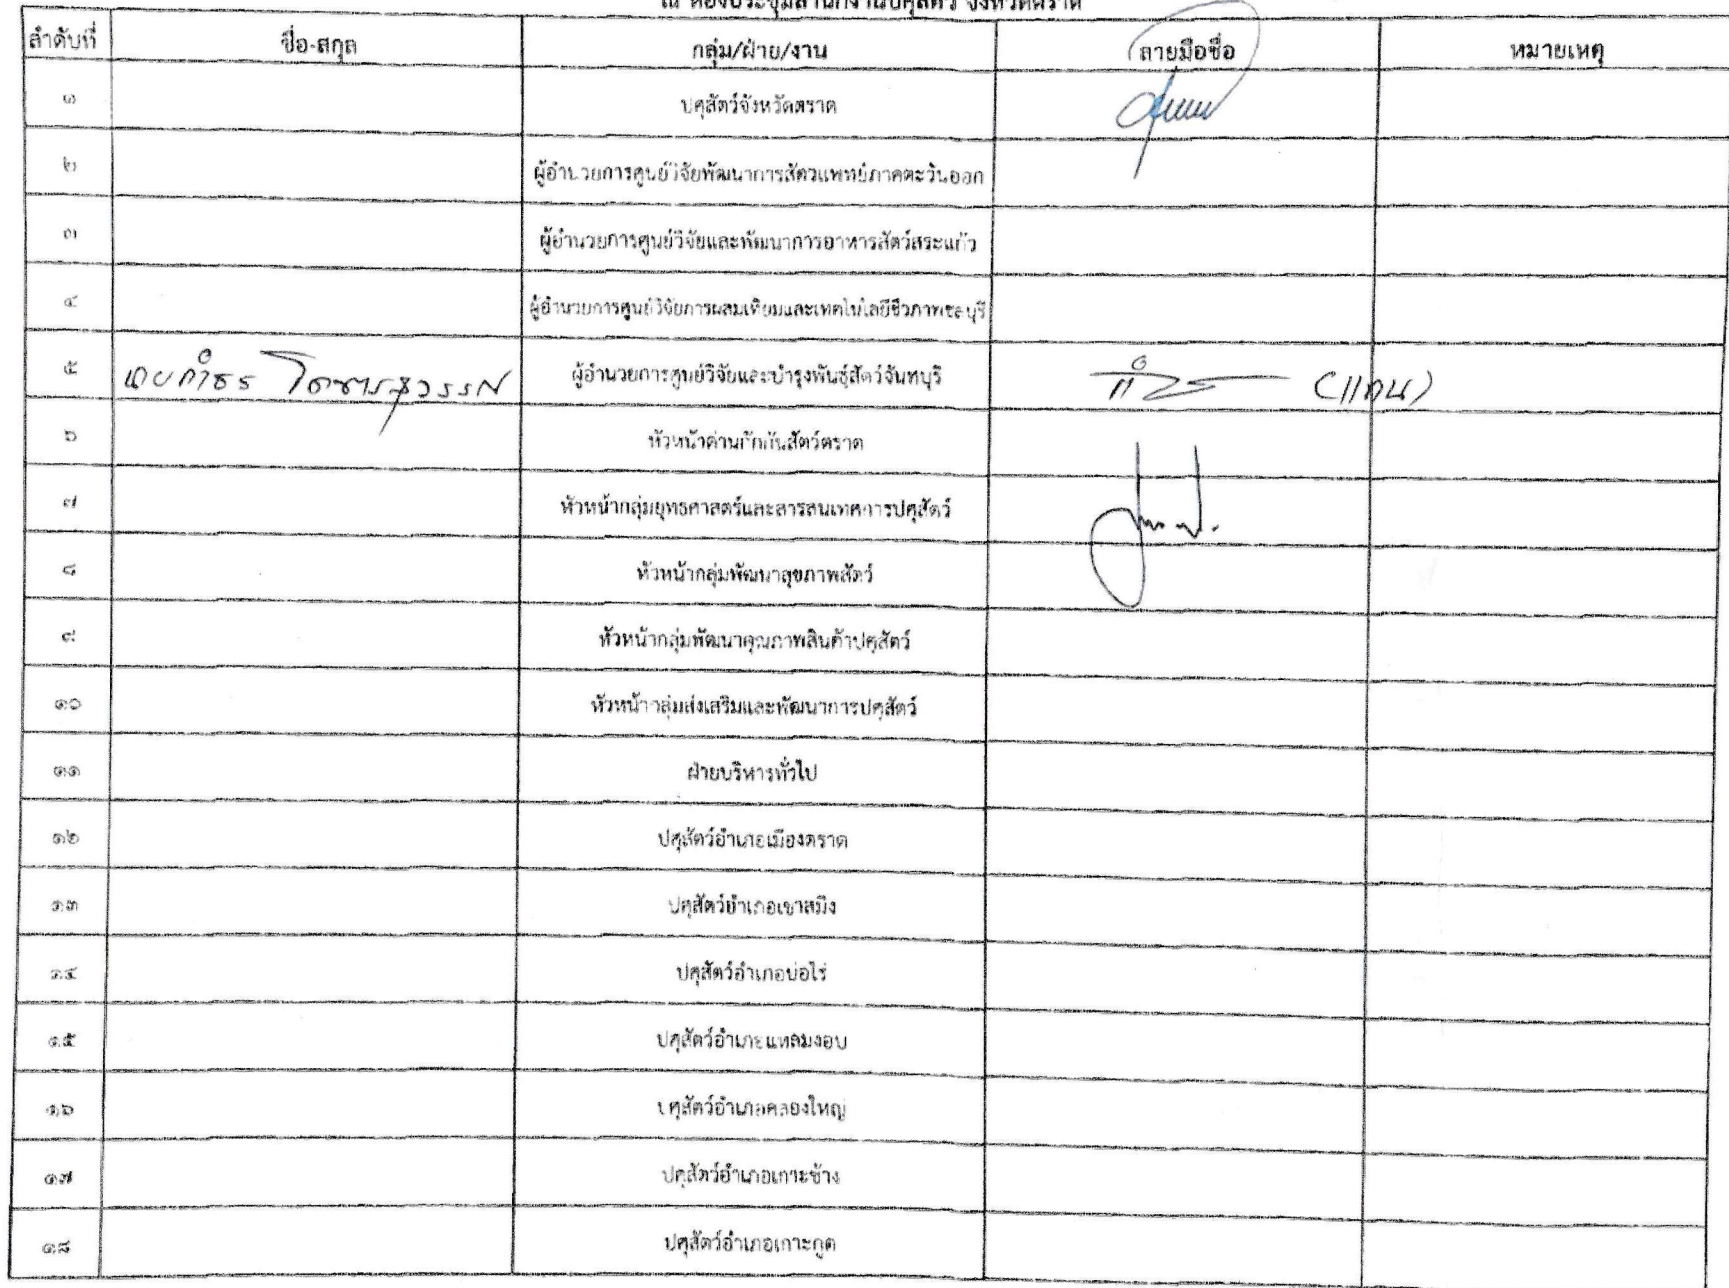 ณ ห้องประชุมสำนักงานปศุสัตว์ จังหวัดตราด
ลำดับที่ ชื่อ-สกุล กลุ่ม/ฝ่าย/งาน ลายมือชื่อ หมายเหตุ
๑ ปศุสัตว์จังหวัดตราด
๒ ผู้อำนวยการศูนย์วิจัยพัฒนาการสัตวแพทย์ภาคตะวันออก
๓ ผู้อำนวยการศูนย์วิจัยและพัฒนาการอาหารสัตว์สระแก้ว
๔ ผู้อำนวยการศูนย์วิจัยการผสมเทียมและเทคโนโลยีชีวภาพชลบุรี
๕ นายกำธร ผู้อำนวยการศูนย์วิจัยและบำรุงพันธุ์สัตว์จันทบุรี (แทน)
๖ หัวหน้าด่านกักกันสัตว์ตราด
๗ หัวหน้ากลุ่มยุทธศาสตร์และสารสนเทศการปศุสัตว์
๘ หัวหน้ากลุ่มพัฒนาสุขภาพสัตว์
๙ หัวหน้ากลุ่มพัฒนาคุณภาพสินค้าปศุสัตว์
๑๐ หัวหน้ากลุ่มส่งเสริมและพัฒนาการปศุสัตว์
๑๑ ฝ่ายบริหารทั่วไป
๑๒ ปศุสัตว์อำเภอเมืองตราด
๑๓ ปศุสัตว์อำเภอเขาสมิง
๑๔ ปศุสัตว์อำเภอบ่อไร่
๑๕ ปศุสัตว์อำเภอแหลมงอบ
๑๖ ปศุสัตว์อำเภอคลองใหญ่
๑๗ ปศุสัตว์อำเภอเกาะช้าง
๑๘ ปศุสัตว์อำเภอเกาะกูด